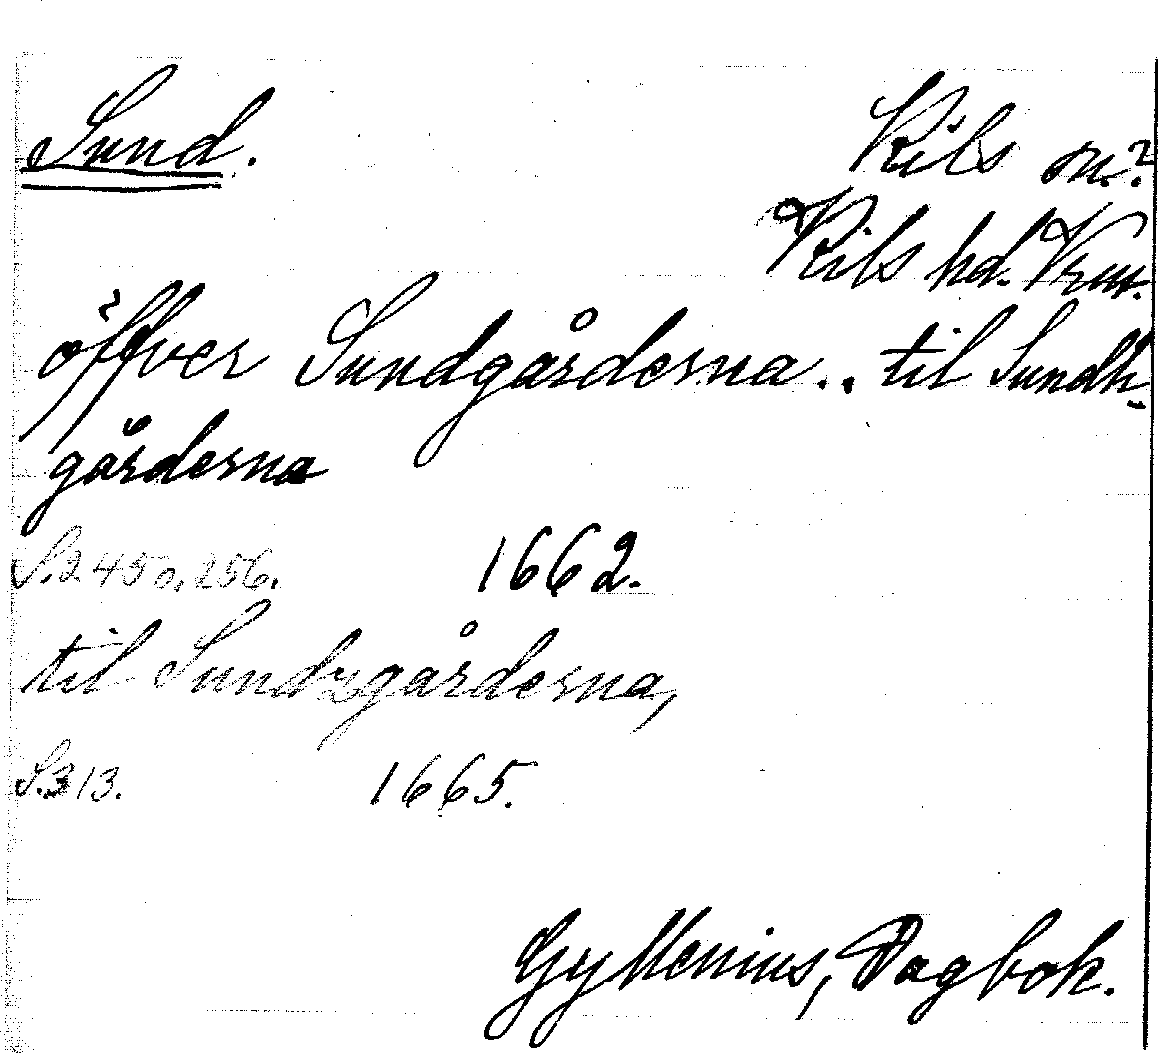 Sund. Kils sn.?
Kils hd. Vrm.
öffver Sundgårderna.. til Sundh-
gårderna
S. 245 o. 256. 1662.
til Sundzgårderna,
S. 313. 1665.
Gyllenius, Dagbok.